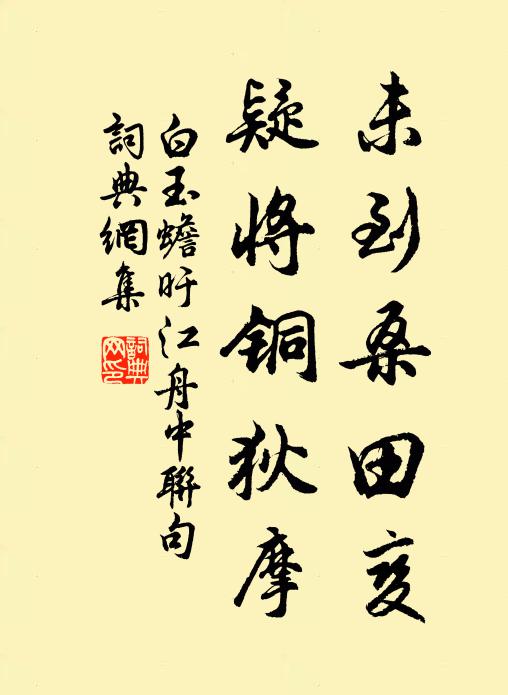 未到桑田变
疑将铜狄摩
白玉蟾盱江舟中聯句
詞典網集
詞典網印